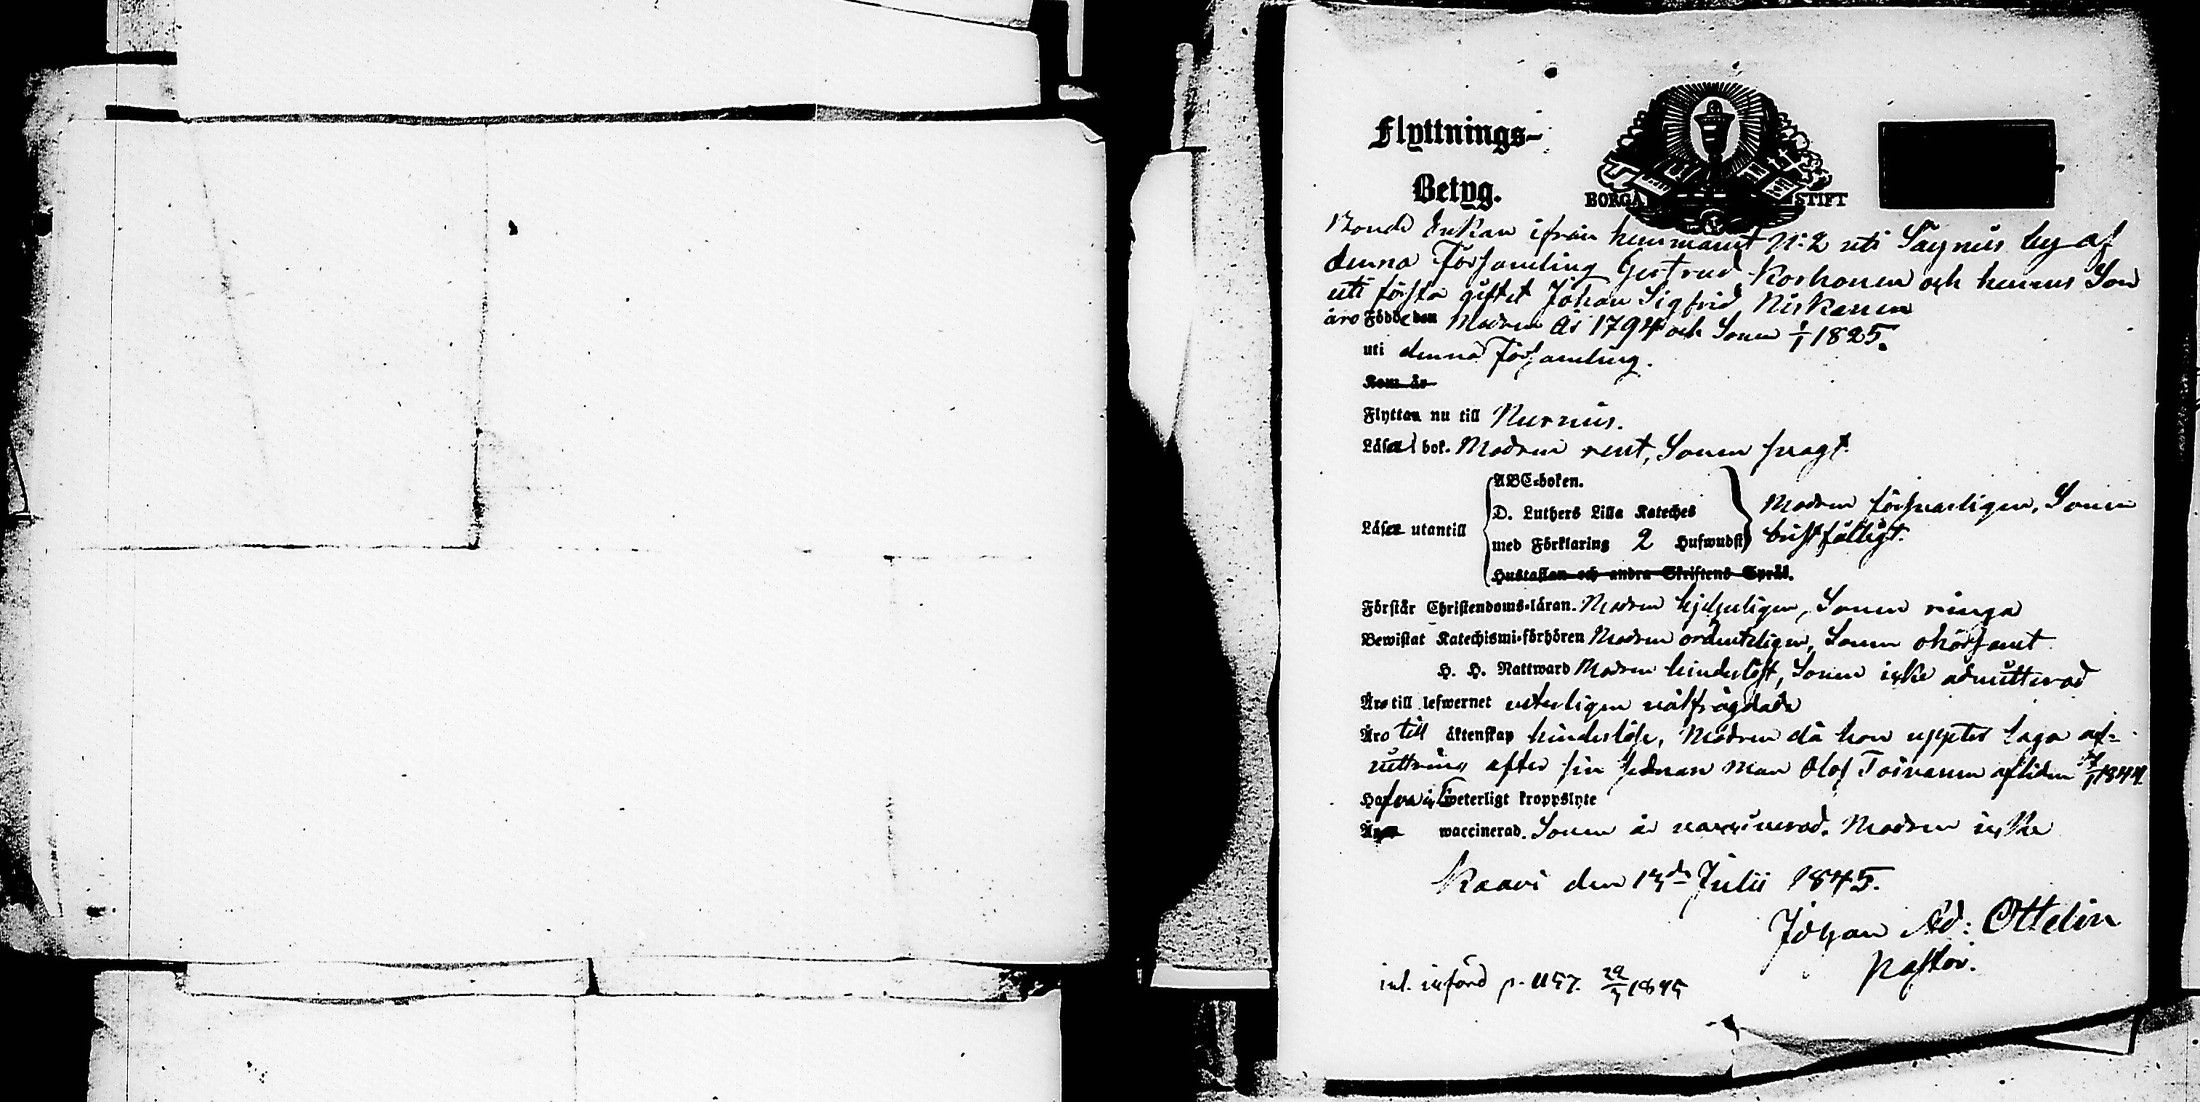 Flyttnings-
Betyg.
BORGÅ STIFT
Bonde Enkan ifrån hemmanet N:2 uti Säynäis by af
denna Församling Gertrud Korhonen och hennes Son
uti första giftet Johan Sigfrid Niskanen
äro Födde den Modren År 1794 och Sonen 1/1 1825.
uti denna Församling.
Kom år
Flyttar nu till Nurmis.
Läsa i bok. Modren rent, Sonen svagt.
ABC-boken.
D. Luthers Lilla Kateches
Läser utantill
med Förklaring 2 Hufwudst
Modren försvarligen, Sonen
bristfälligt.
Hustaflan och andra Skriftens Språk.
Förstår Christendoms-läran. Modren hjelpeligen, Sonen ringa
Bewistat Katechismi-förhören Modren ordenteligen, Sonen ohörsamt
H. H. Nattward Modren hinderlöst, Sonen icke admitterad
Äro till lefwernet veterligen välfrägdade
Äro till äktenskap hinderlöse, Modren då hon upptet laga af-
vittring efter sin sednare man Olof Toivanen afliden 1844
Hafva ej weterligt kroppslyte
Är waccinerad. Sonen är vaccinerad. Modren icke
Kaavi den 13de Julii 1845.
Johan Ad: Ottelin
Pastor.
införd p. 1845